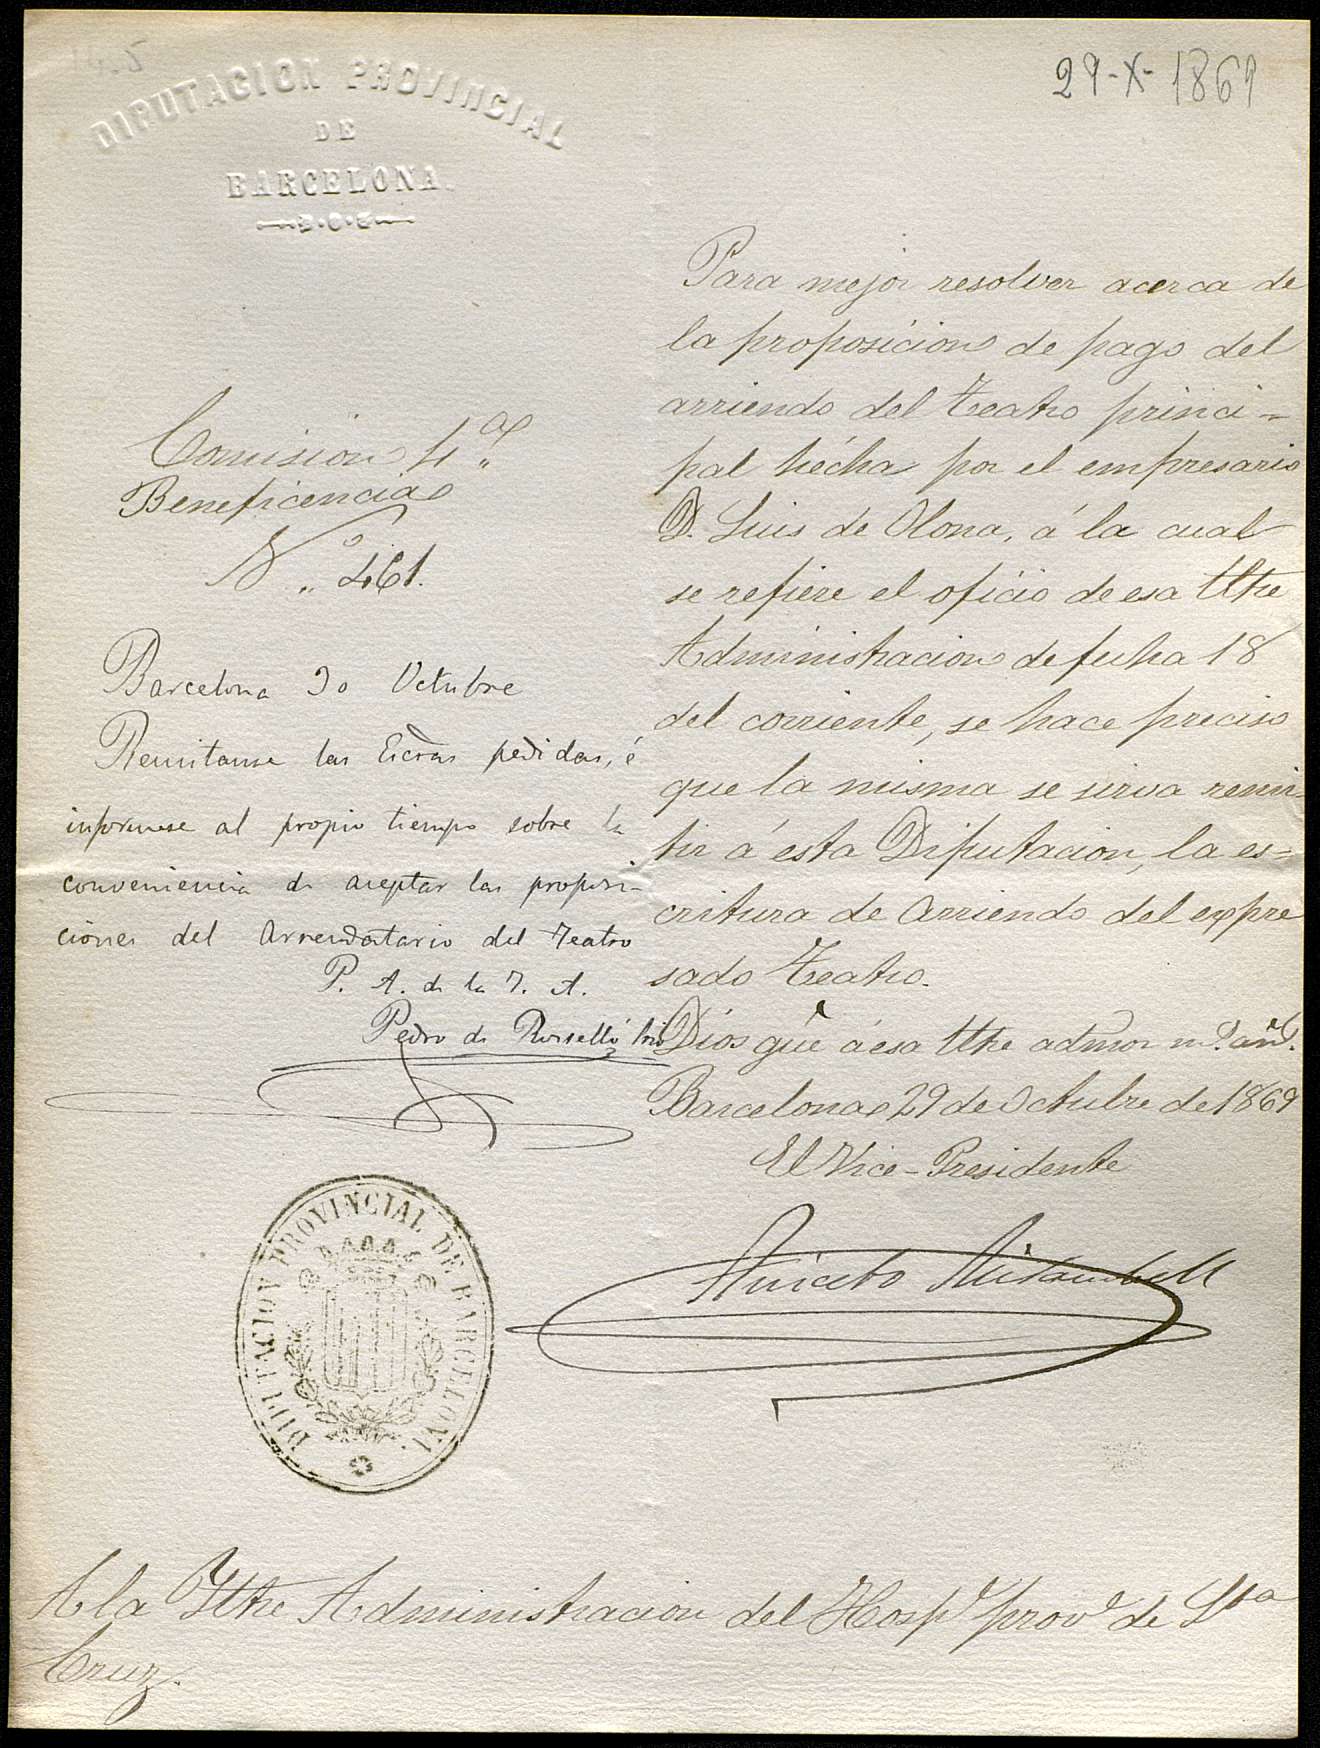 DIPUTACION PROVINCIAL
DE
BARCELONA
29-X-1869
Comision 4ª
Beneficencia
Nº 461.
Barcelona 30 Octubre
Remitanse las Escras pedidas, é
informese al propio tiempo sobre la
conveniencia de aceptar las proposi-
ciones del Arrendatario del Teatro
P. A. de la I. A.
Pedro de Rosselló
Para mejor resolver acerca de
la proposicion de pago del
arriendo del Teatro princi-
pal hécha por el empresario
D. Luis de Olona, á la cual
se refiere el oficio de esa Iltre
Administracion de fecha 18
del corriente, se hace preciso
que la misma se sirva remi-
tir á ésta Diputacion, la es-
critura de arriendo del expre
sado Teatro.
Dios gue á esa Iltre admon ms. as.
Barcelona 29 de Octubre de 1869
El Vice-Presidente
Aniceto Mirambell
DIPUTACION PROVINCIAL DE BARCELONA
A la Iltre Administracion del Hospl provl de Sta
Cruz.